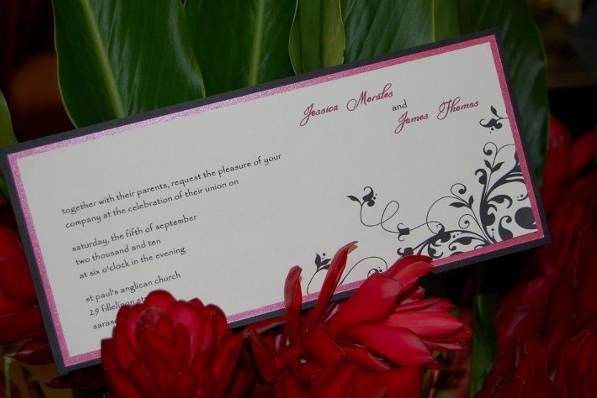 Jessica Morales
and
James Thomas
together with their parents, request the pleasure of your
company at the celebration of their union on
saturday, the fifth of september
two thousand and ten
at six o'clock in the evening
st paul's anglican church
29